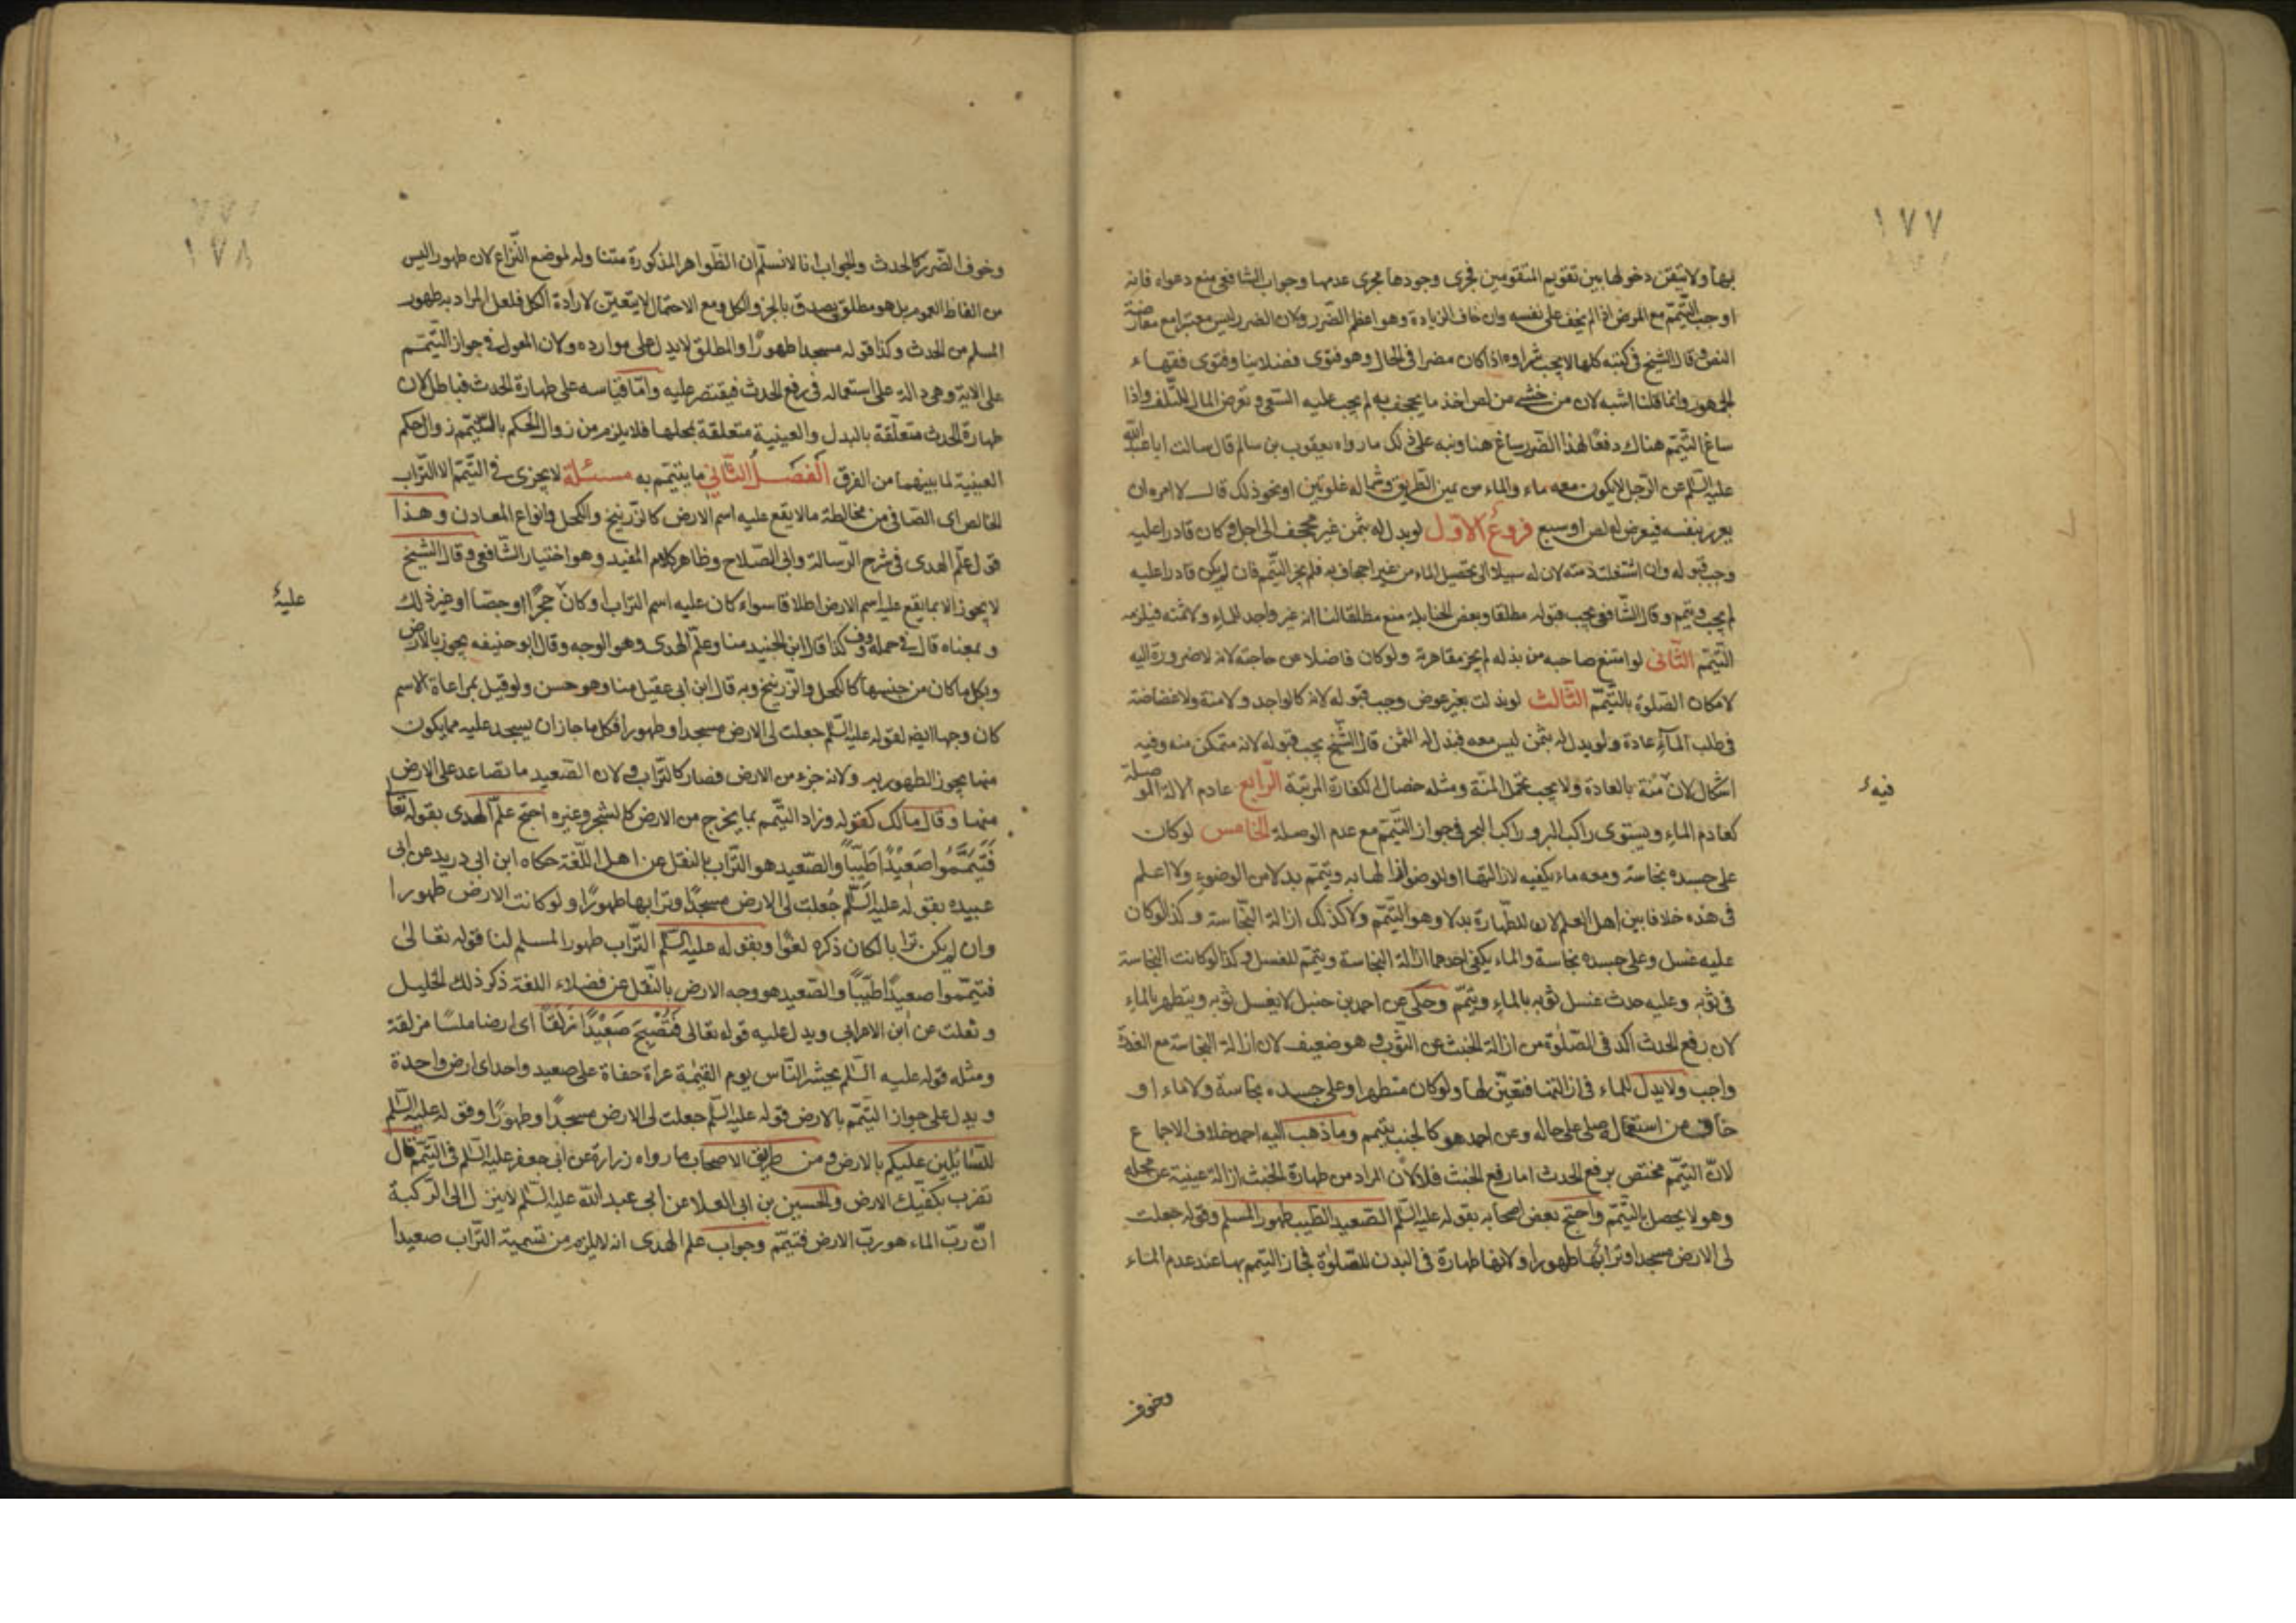 ١٧٧
بها ولا تيقن دخولها بين تقويم المتقومين فجرى وجودها مجرى عدمها وجواب الشافعى منع دعواه فانه
اوجب التيمّم مع المرض اذا لم يخف على نفسه وان خاف الزيادة وهو اعظم الضّرر ولان الضرر ليس معتبرا مع معارضة
النص وقال الشيخ فى كتبه كلها لا يجب شراوه اذا كان مضرا فى الحال وهو فتوى فضلاينا وفتوى فقهاء
الجمهور وانما قلنا اشبه لان من خشى من لص اخذ ما يجحف به لم يجب عليه السّعى وتعرض المال للتّلف واذا
ساغ التيمّم هناك دفعًا لهذا الضّرر ساغ هنا ونبه على ذلك ما رواه يعقوب بن سالم قال سالت ابا عبد اللّه
عليه السّلم عن الرّجل لا يكون معه ماء والماء من يمين الطّريق وشماله غلوتين او نحو ذلك قال لا امره ان
يعرر بنفسه فيعرض له لص او سبع فروع الاوّل لو بدل له بثمن غير مجحف الى اجل وكان قادرا عليه
وجب قبوله وان اشتغلت ذمته لان له سبيلا الى تحصيل الماء من غير اجحاف به فلم يجز التيّمم فان لم يكن قادرا عليه
لم يجب ويتيمم وقال الشّافعى يجب قبوله مطلقا وبعض الحنابلة منع مطلقا لنا انه غير واجد للماء ولا ثمنه فيلزمه
التّيمّم الثّانى لو امتنع صاحبه من بذله لم يجز مقاهرته ولو كان فاضلا عن حاجته لانه لا ضرورة اليه
لامكان الصّلوة بالتّيمّم الثّالث لو بذلت بغير عوض وجب قبوله لانه كالواجد ولا منة ولا غضاضة
فى طلب المآء عادة ولو بدل له بثمن ليس معه فبذل له الثمن قال الشّيخ يجب قبوله لانه متمكن منه وفيه
اشكال لان منّة بالعادة ولا يجب تحمّل المنّة ومثله خصال الكفارة المرتبة الرّابع عادم الالة الموصلة
فيه
كعادم الماء ويستوى راكب البر وراكب البحر فى جواز التّيمّم مع عدم الوصلة الخامس لو كان
على جسده نجاسة ومعه ماء يكفيه لازالتها او للوضوء ازالها به ويتيّمم بدلا من الوضوء ولا اعلم
فى هذه خلافا بين اهل العلم لان للطّهارة بدلا وهو التّيمّم ولا كذلك ازالة النّجاسة وكذا لو كان
عليه غسل وعلى جسده نجاسة والماء يكفى احدهما ازالة النجاسة ويتيمّم للغسل وكذا لو كانت النجاسة
فى ثوبه وعليه حدث غسل ثوبه بالماء ويتيمّم وحكى عن احمد بن حنبل لا يغسل ثوبه ويتطهر بالماء
لان رفع الحدث اكد فى الصّلوة من ازالة الخبث عن الثّوب وهو ضعيف لان ازالة النجاسة مع القدرة
واجب ولا بدل للماء فى ازالتها فتعيّن لها ولو كان متطهرا وعلى جسده نجاسة ولا ماء او
خاف من استعماله صلى على حاله وعن احمد هو كالجنب يتيمم وما ذهب اليه احمد خلاف الاجماع
لانّ التيمّم مختص برفع الحدث اما رفع الخبث فلا لان المراد من طهارة الخبث ازالة عينية عن محله
وهو لا يحصل بالتيمّم واحتج بعض اصحابه بقوله عليه السّلم الصّعيد الطّيب طهور المسلم وقوله جعلت
لى الارض مسجدا وترابها طهورا ولانها طهارة فى البدن للصّلوة فجاز التيمم بها عند عدم الماء
وخوف
١٧٨
وخوف الضّرر كالحدث والجواب انا لا نسلّم ان الظّواهر المذكورة متناوله لموضع النّزاع لان طهورا ليس
من الفاظ العموم بل هو مطلق يصدق بالجزو الكل ومع الاحتمال لا يتعيّن لارادة الكل فلعل المراد به طهور
المسلم من الحدث وكذا قوله مسجدا طهورًا والمطلق لا يدل على موارده وكان المعول فى جواز التّيمّم
على الاية وهى دالة على استعماله فى رفع الحدث فيقتصر عليه وامّا قياسه على طهارة الحدث فباطل لان
طهارة الحدث متعلّقة بالبدل والعينية متعلقة بمحلها فلا يلزم من زوال الحكم بالتّيمّم زوال حكم
العينية لما بينهما من الفرق الفصل الثّانى ما يتيمّم به مسئلة لا يجزى فى التّيمّم الا التّراب
الخالص اى الصّافى من مخالطة ما لا يقع عليه اسم الارض كالزّرنيخ والكحل وانواع المعادن وهذا
قول علم الهدى فى شرح الرّسالة وابى الصّلاح وظاهر كلام المفيد وهو اختيار الشّافعى وقال الشّيخ
لا يجوز الا بما يقع عليه اسم الارض اطلاقا سواء كان عليه اسم التراب او كان حجرًا او جصّا او غير ذلك
علية
وبمعناه قال فى جمل وف كذا قال ابن الجنيد منا وعلم الهدى وهو الوجه وقال ابو حنيفه يجوز بالارض
وبكل ما كان من جنسها كالكحل والزّرنيخ وبه قال ابن ابى عقيل منا وهو حسن ولو قيل بمراعاة الاسم
كان وجها ايضا لقوله عليه السّلم جعلت لى الارض مسجدا وطهورا فكل ما جاز ان يسجد عليه مما يكون
منها يجوز الطهور به ولانه جزء من الارض فصار كالتّراب ولان الصّعيد ما تصاعد على الارض
منها وقال مالك كقوله وزاد التيّمم بما يخرج من الارض كالشجر وغيره احتج علم الهدى بقوله تعا
فَتَيَمَّمُوا صَعِيْدًا طَيِّبًا والصّعيد هو التّراب بالنقل عن اهل اللّغة حكاه ابن ابى دريد عن ابى
عبيده بقوله عليه السّلم جُعلت لى الارض مسجدًا وترابها طهورًا ولو كانت الارض طهورا
وان لم يكن ترابا لكان ذكره لغوًا وبقوله عليه السّلم التّراب طهور المسلم لنا قوله تعالى
فتيمّموا صعيدًا طيّبًا والصّعيد هو وجه الارض بالنّقل عن فضلاء اللغة ذكر ذلك الخليل
وثعلب عن ابن الاعرابى ويدل عليه قوله تعالى فَتُصْبِحَ صَعِيْدًا زَلَقًا اى ارضا ملسًا مزلقة
ومثله قوله عليه السّلم يحشر النّاس يوم القيٰمة عراة حفاة على صعيد واحد اى ارض واحدة
ويدل على جواز التّيمّم بالارض قوله عليه السّلم جعلت لى الارض مسجدًا وطهورًا وقوله عليه السّلم
للسّائلين عليكم بالارض ومن طريق الاصحاب ما رواه زرارة عن ابى جعفر عليه السّلم فى التّيمّم قال
تضرب بكفّيك الارض والحسين بن ابى العلا عن ابى عبد اللّه عليه السّلم لا ينزل الى الرّكية
انّ ربّ الماء هو ربّ الارض فتيمّم وجواب علم الهدى انه لا يلزم من تسمية التّراب صعيدا